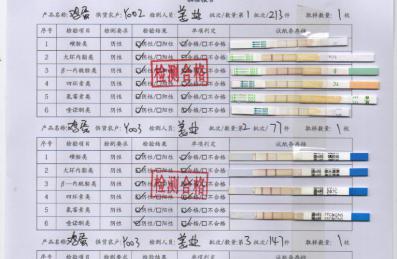 产品名称:鸡蛋 供货农户:Y002 检测人员:姜业 批次/数量:第1批次/213件 取样数量:1枚
序号 检验项目 检测要求 检验结果 单项判定 试纸条存档
1 喹胺类 阴性 ☑阴性/□阳性 ☑合格/□不合格
2 大环内酯类 阴性 ☑阴性/□阳性 ☑合格/□不合格
3 β-内酰胺类 阴性 ☑阴性/□阳性 ☑合格/□不合格
4 四环素类 阴性 ☑阴性/□阳性 ☑合格/□不合格
5 氯霉素类 阴性 ☑阴性/□阳性 ☑合格/□不合格
6 喹诺酮类 阴性 ☑阴性/□阳性 ☑合格/□不合格
检测合格
产品名称:鸡蛋 供货农户:Y003 检测人员:姜业 批次/数量:第2批次/77件 取样数量:1枚
序号 检验项目 检测要求 检验结果 单项判定 试纸条存档
1 喹胺类 阴性 ☑阴性/□阳性 ☑合格/□不合格
2 大环内酯类 阴性 ☑阴性/□阳性 ☑合格/□不合格
3 β-内酰胺类 阴性 ☑阴性/□阳性 ☑合格/□不合格
4 四环素类 阴性 ☑阴性/□阳性 ☑合格/□不合格
5 氯霉素类 阴性 ☑阴性/□阳性 ☑合格/□不合格
6 喹诺酮类 阴性 ☑阴性/□阳性 ☑合格/□不合格
检测合格
产品名称:鸡蛋 供货农户:Y003 检测人员:姜业 批次/数量:第3批次/141件 取样数量:1枚